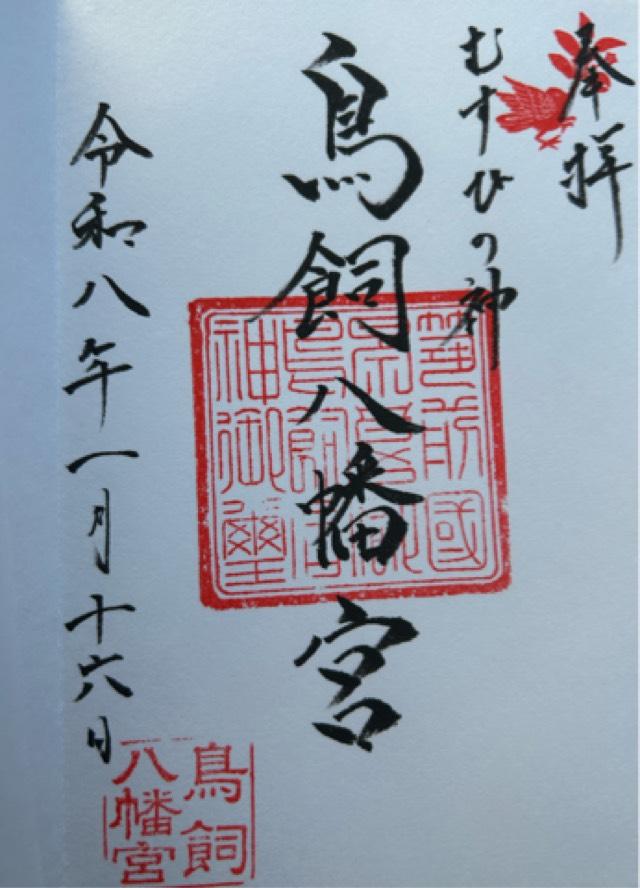 奉拝
むすびの神
鳥飼八幡宮
筑前國
神御璽
令和八年一月十六日
鳥飼
八幡宮